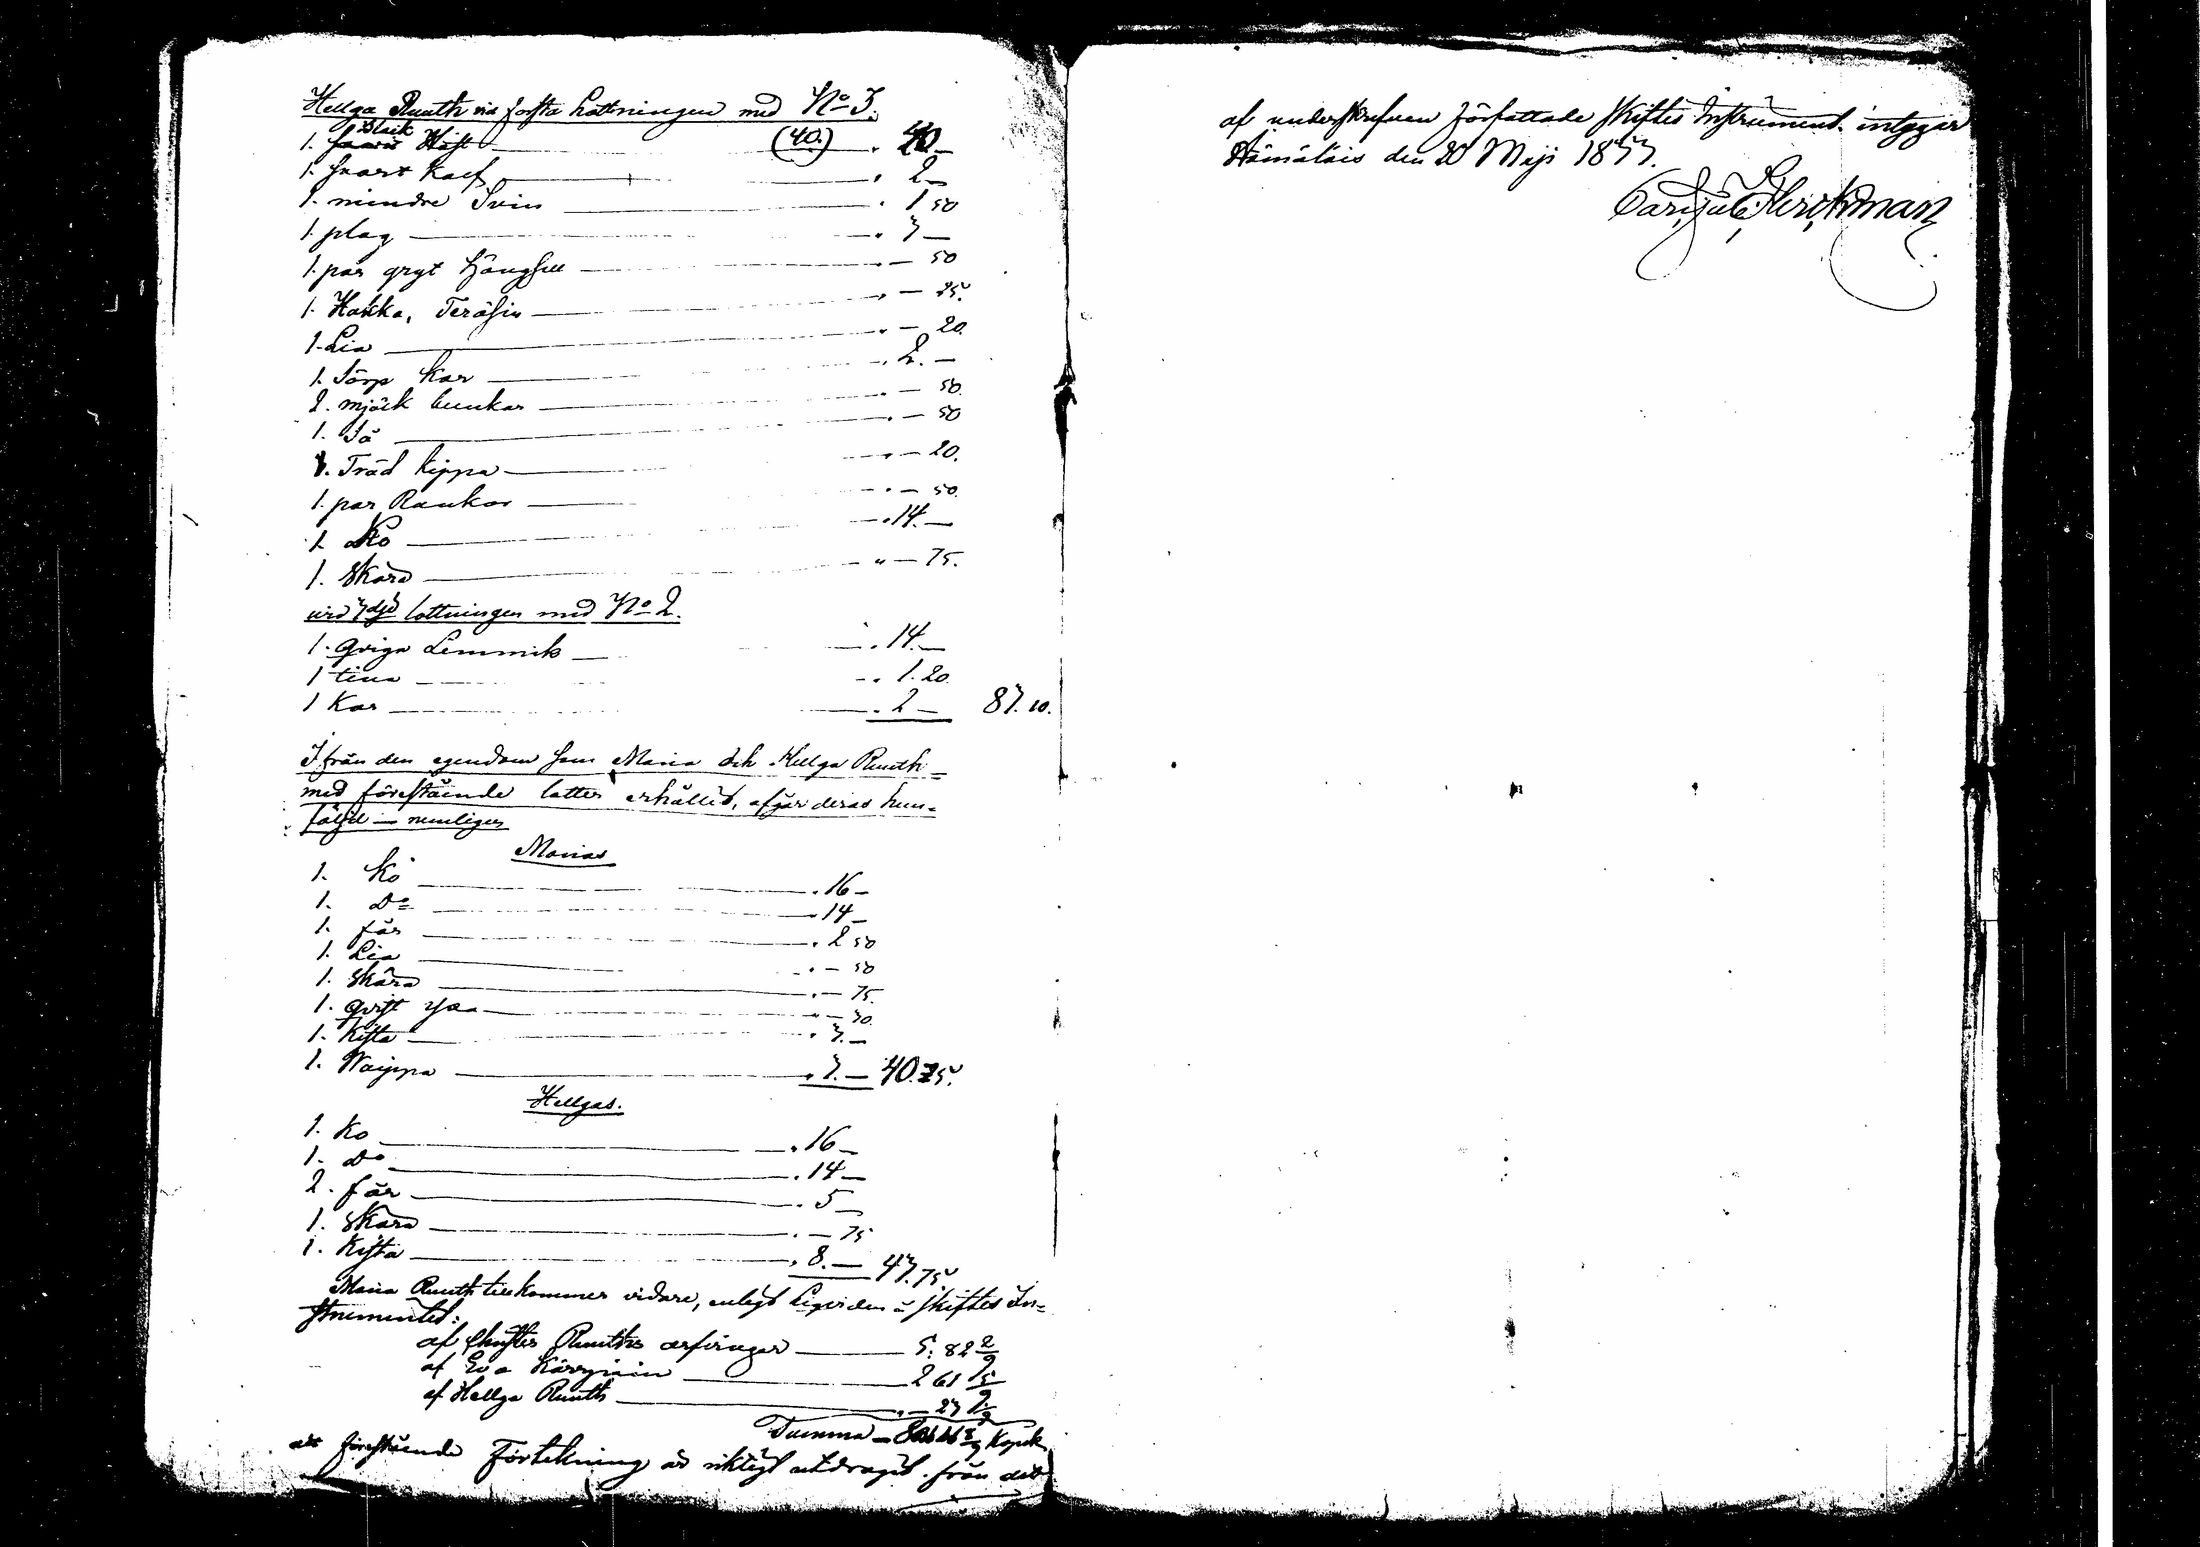 Hellga Ruuth via första Lottningen med No 3.
1. Black Häst (40.) 40 —
1. svart Kalf 2 —
1. mindre Svin 1 50
1. plog 3 —
1. par gryt hängsell — 50
1. Hakka, Teräsin — 25.
1. Lia — 20.
1. Sörp Kar 2. —
2. mjölk bunkar — 50.
1. Så — 50
1. Träd kippa — 20.
1. par Rankor — 50.
1. Ko 14. —
1. Skära — 75.
vid 3dje lottningen med No 2.
1. Qviga Lemmik 14. —
1 tina 1. 20.
1 Kar 2 — 87. 10.
Ifrån den egendom som Maria och Hellga Ruuth
med förestående lotter erhållit, afgår deras hem=
följd — nemligen
Marias
1. Ko 16 —
1. do 14 —
1. får 2 50
1. Lia — 50
1. Skära — 75.
1. qvist yxa — 30.
1. Kista 3. —
1. Waippa 3. — 40. 75.
Hellgas.
1. Ko 16 —
1. do 14 —
2. får 5 —
1. Skära — 75
1. Kista 8. — 43. 75.
Maria Ruuth tillkommer vidare, enligt Liqviden i skiftes In=
strumentet:
af Ruuths arfvingar 5. 82 2/9
af Eva 2 61 5/9
af Hellga Ruuth — 23
Summa Kopek
att förestående Förtekning är riktigt utdraget från det
af underskrefven författade Skiftes Instrument. intygar
den 20 Maji 1853.